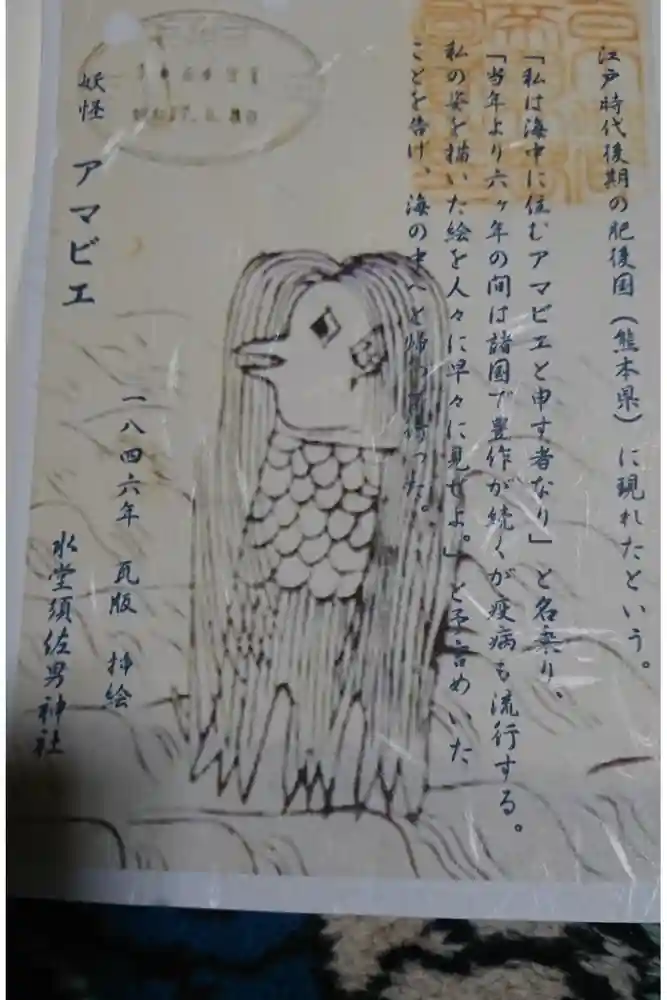 江戸時代後期の肥後国(熊本県)に現れたという。
「私は海中に住むアマビエと申す者なり」と名乗り、
「当年より六ヶ年の間は諸国で豊作が続くが疫病も流行する。
私の姿を描いた絵を人々に早々に見せよ。」と予言めいた
ことを告げ、海の中へと帰って行った。
妖怪 アマビエ
一八四六年 瓦版 挿絵
水堂須佐男神社